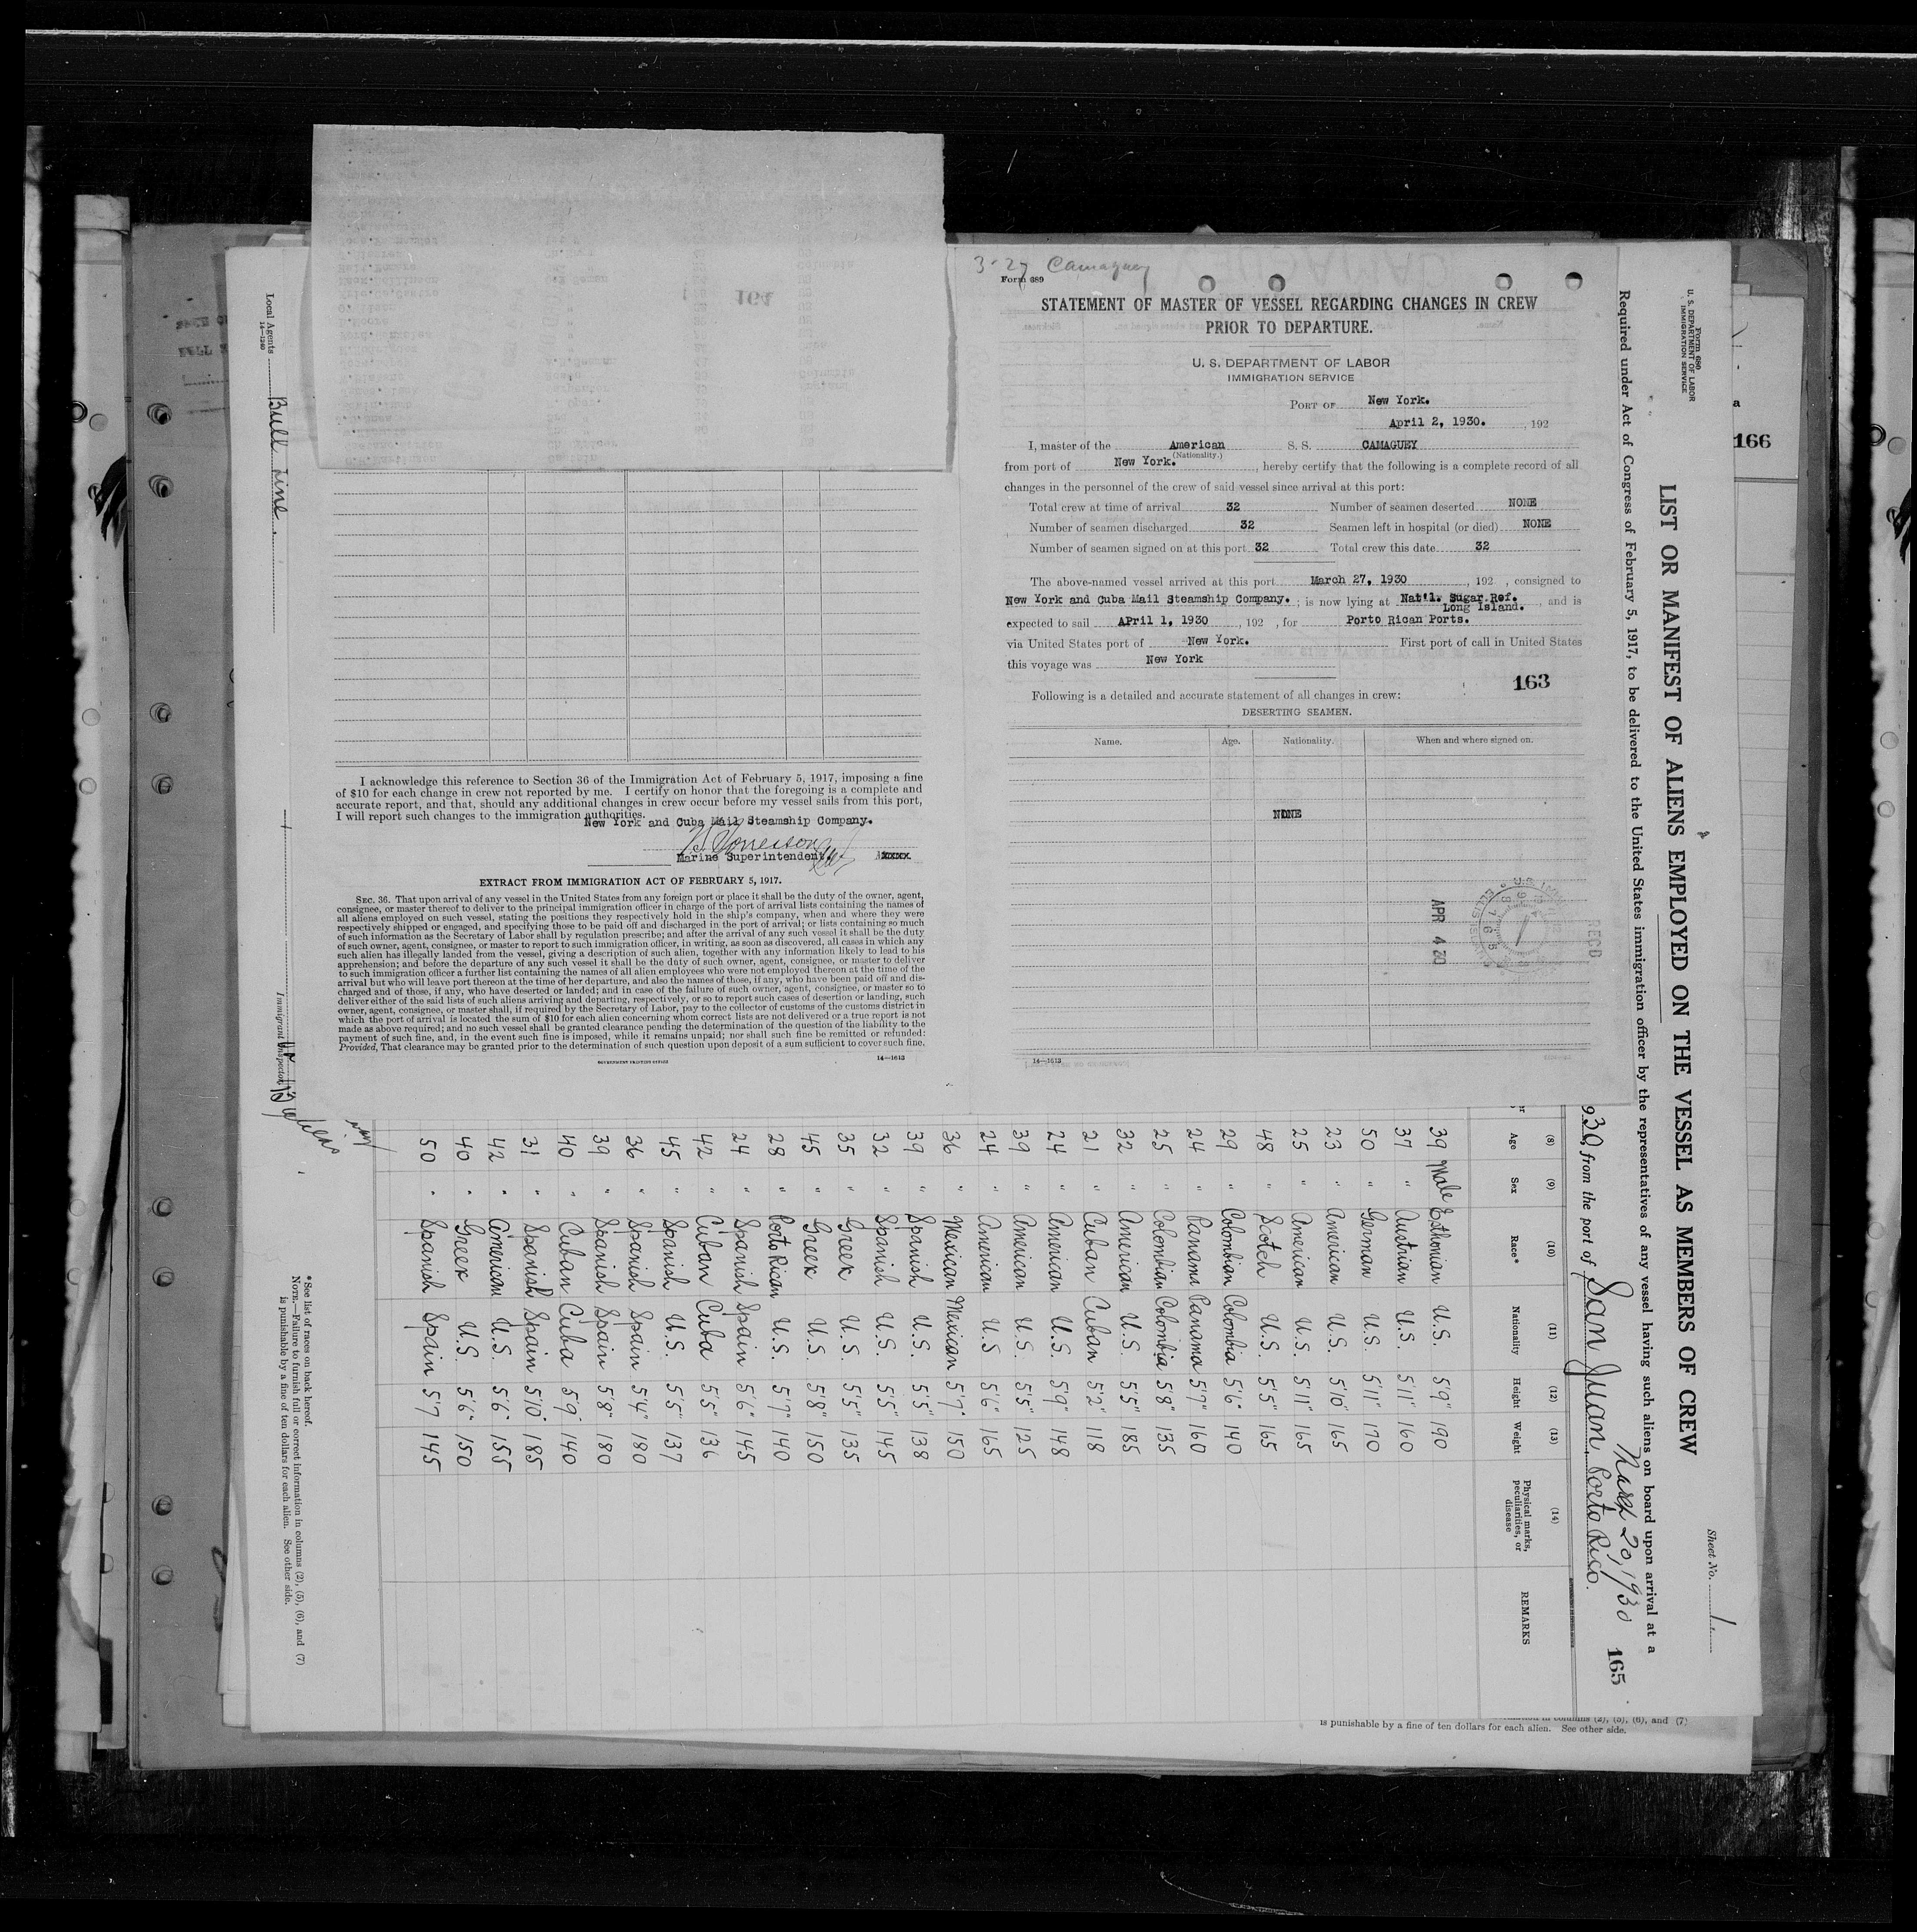 3-27 Camaguey
Form 689
STATEMENT OF MASTER OF VESSEL REGARDING CHANGES IN CREW
PRIOR TO DEPARTURE.
U. S. DEPARTMENT OF LABOR
IMMIGRATION SERVICE
PORT OF New York.
April 2, 1930. , 192
I, master of the American S. S. CAMAGUEY
(Nationality.)
from port of New York. , hereby certify that the following is a complete record of all
changes in the personnel of the crew of said vessel since arrival at this port:
Total crew at time of arrival 32 Number of seamen deserted NONE
Number of seamen discharged 32 Seamen left in hospital (or died) NONE
Number of seamen signed on at this port 32 Total crew this date 32
The above-named vessel arrived at this port March 27, 1930 , 192 , consigned to
New York and Cuba Mail Steamship Company. ; is now lying at Nat'l. Sugar Ref.
Long Island. , and is
expected to sail April 1, 1930 , 192 , for Porto Rican Ports.
via United States port of New York. First port of call in United States
this voyage was New York
163
Following is a detailed and accurate statement of all changes in crew:
DESERTING SEAMEN.
Name. Age. Nationality. When and where signed on.
NONE
APR 4 30
REC'D
14—1613
164
I acknowledge this reference to Section 36 of the Immigration Act of February 5, 1917, imposing a fine
of $10 for each change in crew not reported by me. I certify on honor that the foregoing is a complete and
accurate report, and that, should any additional changes in crew occur before my vessel sails from this port,
I will report such changes to the immigration authorities.
New York and Cuba Mail Steamship Company.
Marine Superintendent.
EXTRACT FROM IMMIGRATION ACT OF FEBRUARY 5, 1917.
SEC. 36. That upon arrival of any vessel in the United States from any foreign port or place it shall be the duty of the owner, agent,
consignee, or master thereof to deliver to the principal immigration officer in charge of the port of arrival lists containing the names of
all aliens employed on such vessel, stating the positions they respectively hold in the ship's company, when and where they were
respectively shipped or engaged, and specifying those to be paid off and discharged in the port of arrival; or lists containing so much
of such information as the Secretary of Labor shall by regulation prescribe; and after the arrival of any such vessel it shall be the duty
of such owner, agent, consignee, or master to report to such immigration officer, in writing, as soon as discovered, all cases in which any
such alien has illegally landed from the vessel, giving a description of such alien, together with any information likely to lead to his
apprehension; and before the departure of any such vessel it shall be the duty of such owner, agent, consignee, or master to deliver
to such immigration officer a further list containing the names of all alien employees who were not employed thereon at the time of the
arrival but who will leave port thereon at the time of her departure, and also the names of those, if any, who have been paid off and dis-
charged and of those, if any, who have deserted or landed; and in case of the failure of such owner, agent, consignee, or master so to
deliver either of the said lists of such aliens arriving and departing, respectively, or so to report such cases of desertion or landing, such
owner, agent, consignee, or master shall, if required by the Secretary of Labor, pay to the collector of customs of the customs district in
which the port of arrival is located the sum of $10 for each alien concerning whom correct lists are not delivered or a true report is not
made as above required; and no such vessel shall be granted clearance pending the determination of the question of the liability to the
payment of such fine, and, in the event such fine is imposed, while it remains unpaid; nor shall such fine be remitted or refunded:
Provided, That clearance may be granted prior to the determination of such question upon deposit of a sum sufficient to cover such fine.
GOVERNMENT PRINTING OFFICE 14—1613
Form 680
U. S. DEPARTMENT OF LABOR
IMMIGRATION SERVICE
Sheet No. 1
LIST OR MANIFEST OF ALIENS EMPLOYED ON THE VESSEL AS MEMBERS OF CREW
Required under Act of Congress of February 5, 1917, to be delivered to the United States immigration officer by the representatives of any vessel having such aliens on board upon arrival at a
20, 1930 165
930, from the port of San Juan, Porto Rico.
(8) (9) (10) (11) (12) (13) (14)
Age Sex Race* Nationality Height Weight Physical marks, peculiarities, or disease REMARKS
39 Male Esthonian U.S. 5'9" 190
37 " Austrian U.S. 5'11" 160
50 " German U.S. 5'11" 170
23 " American U.S. 5'10" 165
25 " American U.S. 5'11" 165
48 " Scotch U.S. 5'5" 165
29 " Colombian Colombia 5'6" 140
24 " Panama Panama 5'7" 160
25 " Colombian Colombia 5'8" 135
32 " American U.S. 5'5" 185
21 " Cuban Cuban 5'2" 118
24 " American U.S. 5'9" 148
39 " American U.S. 5'5" 125
24 " American U.S 5'6" 165
36 " Mexican Mexican 5'7" 150
39 " Spanish U.S. 5'5" 138
32 " Spanish U.S. 5'5" 145
35 " Greek U.S. 5'5" 135
45 " Greek U.S. 5'8" 150
28 " Porto Rican U.S. 5'7" 140
24 " Spanish Spain 5'6" 145
42 " Cuban Cuba 5'5" 136
45 " Spanish U.S. 5'5" 137
36 " Spanish Spain 5'4" 180
39 " Spanish Spain 5'8" 180
40 " Cuban Cuba 5'9" 140
31 " Spanish Spain 5'10" 185
42 " American U.S. 5'6" 155
40 " Greek U.S. 5'6" 150
50 " Spanish Spain 5'7 145
*See list of races on back hereof.
NOTE.—Failure to furnish full or correct information in columns (2), (5), (6), and (7)
is punishable by a fine of ten dollars for each alien. See other side.
Local Agents Bull Line.
14—1240
Immigrant Inspector.
166
is punishable by a fine of ten dollars for each alien. See other side.